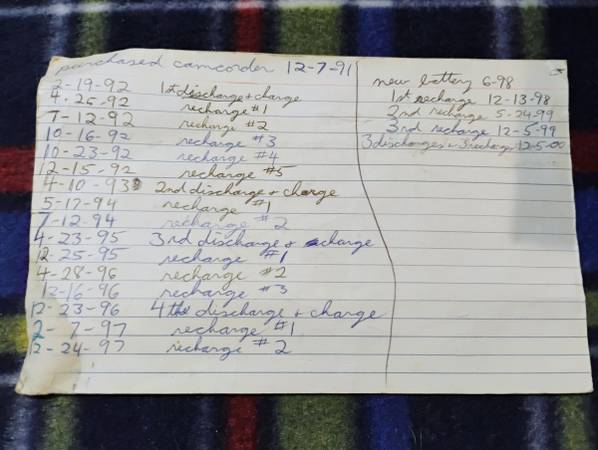 purchased camcorder 12-7-91
2-19-92 1st discharge + charge
4-25-92 recharge #1
7-12-92 recharge #2
10-16-92 recharge #3
10-23-92 recharge #4
12-15-92 recharge #5
4-10-93 2nd discharge + charge
5-17-94 recharge #1
7-12-94 recharge #2
4-23-95 3rd discharge + charge
12-25-95 recharge #1
4-28-96 recharge #2
12-16-96 recharge #3
12-23-96 4th discharge + charge
2-7-97 recharge #1
12-24-97 recharge #2
new battery 6-98
1st recharge 12-13-98
2nd recharge 5-24-99
3rd recharge 12-5-99
3 discharges + recharge 12-5-00